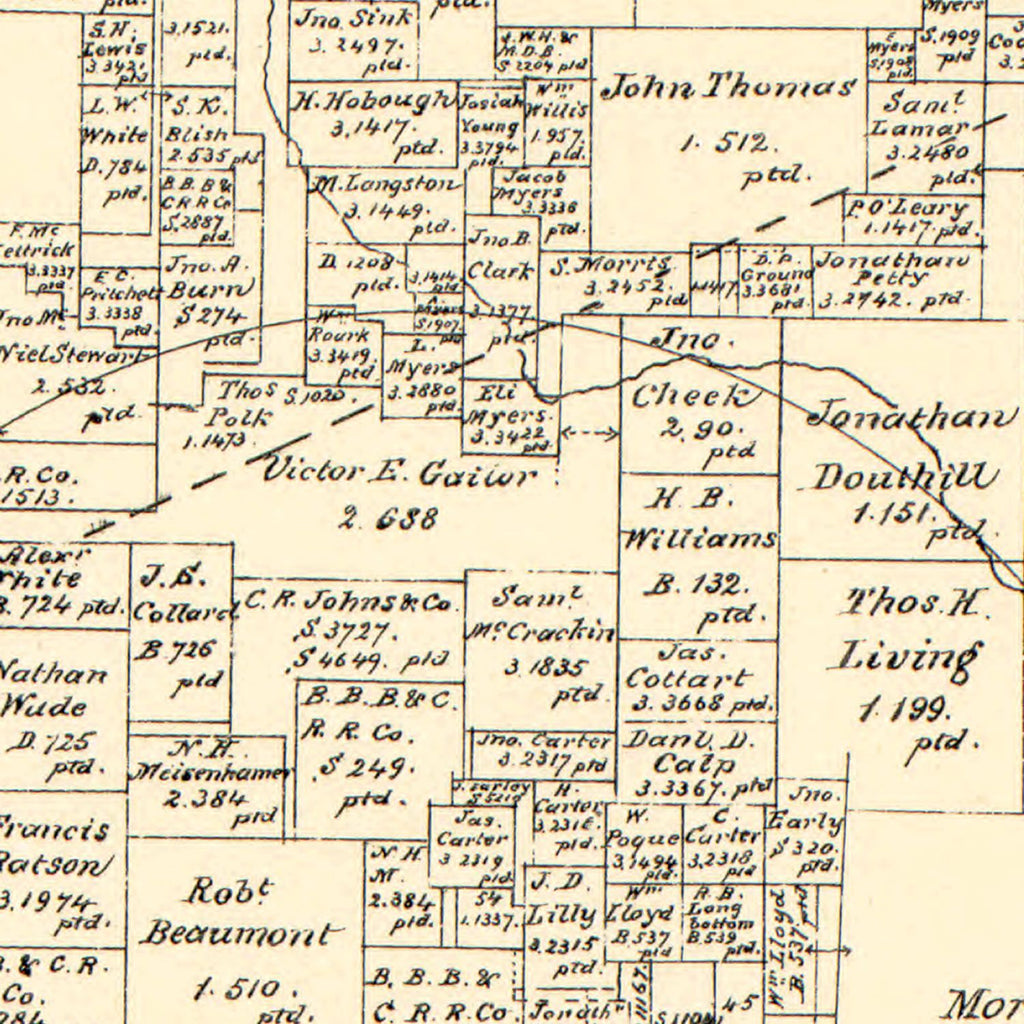 ptd.
S. H.
Lewis
3.3421
ptd
3.1521.
ptd.
Jno. Sink
3.2497.
ptd.
ptd.
J. W. H. &
M. D. B.
S 2204 ptd
John Thomas
1. 512.
ptd.
E.
Myers
S.1908
ptd.
Myers
S.1909
ptd
L. W.
White
D.784
ptd.
S. K.
Blish
2.535 ptd
H. Hobough
3.1417.
ptd.
Josiah
Young
3.3794
ptd.
Wm
Willis
1.957.
ptd.
Saml.
Lamar
3.2480
ptd.
B. B. B &
C. R R Co
S.2887
ptd.
M. Langston
3.1449.
ptd.
Jacob
Myers
3.3336
ptd.
P. O'Leary
1.1417. ptd.
F. Mc
3.3337
ptd.
E. C.
Pritchett
3.3338
ptd.
Jno. A.
Burn
S 274
ptd.
D. 1208
ptd.
3.1414
ptd
Myers
S.1907.
Jno B.
Clark
3.1377
ptd.
S. Morris
3.2452
ptd
1.1417
Ground
3.3681
ptd.
Jonathan
Petty
3.2742. ptd.
Jno Mc
Niel Stewart
2.532.
ptd.
Wm
Rourk
3.3419.
ptd.
L.
Myers
3.2880
ptd.
Eli
Myers.
3.3422
ptd.
Thos S.1020.
Polk
1.1473.
Jno.
Cheek
2.90.
ptd
Jonathan
Douthill
1.151.
ptd.
R. Co.
1513.
Victor E. Gailor
2.688
H. B.
Williams
B. 132.
ptd.
Alexr
White
B. 724 ptd.
J. S.
Collard
B 726
ptd
C. R. Johns & Co.
S.3727.
S 4649. ptd
Saml.
McCrackin
3.1835
ptd.
Thos. H.
Living
1.199.
ptd.
Nathan
Wude
D.725
ptd.
B. B. B. & C.
R. R. Co.
S 249.
ptd.
Jas.
Cottart
3.3668 ptd.
N. H.
Meisenhamer
2.384
ptd
Jno. Carter
3.2317 ptd
Danl. D.
Calp
3.3367. ptd
J. Earley
S 5210
H.
Carter
3.2316
ptd.
Jno.
Early
S 320.
ptd.
Francis
Ratson
3.1974
ptd.
Jas.
Carter
3 2319
ptd
W.
Pogue
3.1494
ptd.
C.
Carter
3.2318
ptd.
Robt
Beaumont
1. 510.
ptd.
N. H.
M.
2.384
ptd.
54
1.1337.
J. D.
Lilly
3.2315
ptd.
Wm
Lloyd
B.537
ptd
R. B.
Long
bottom
B.539
ptd.
Wm Lloyd
B. 537 ptd
B. & C. R.
Co.
984
B. B. B. &
C. R. R. Co.
Jonath
45
Mor